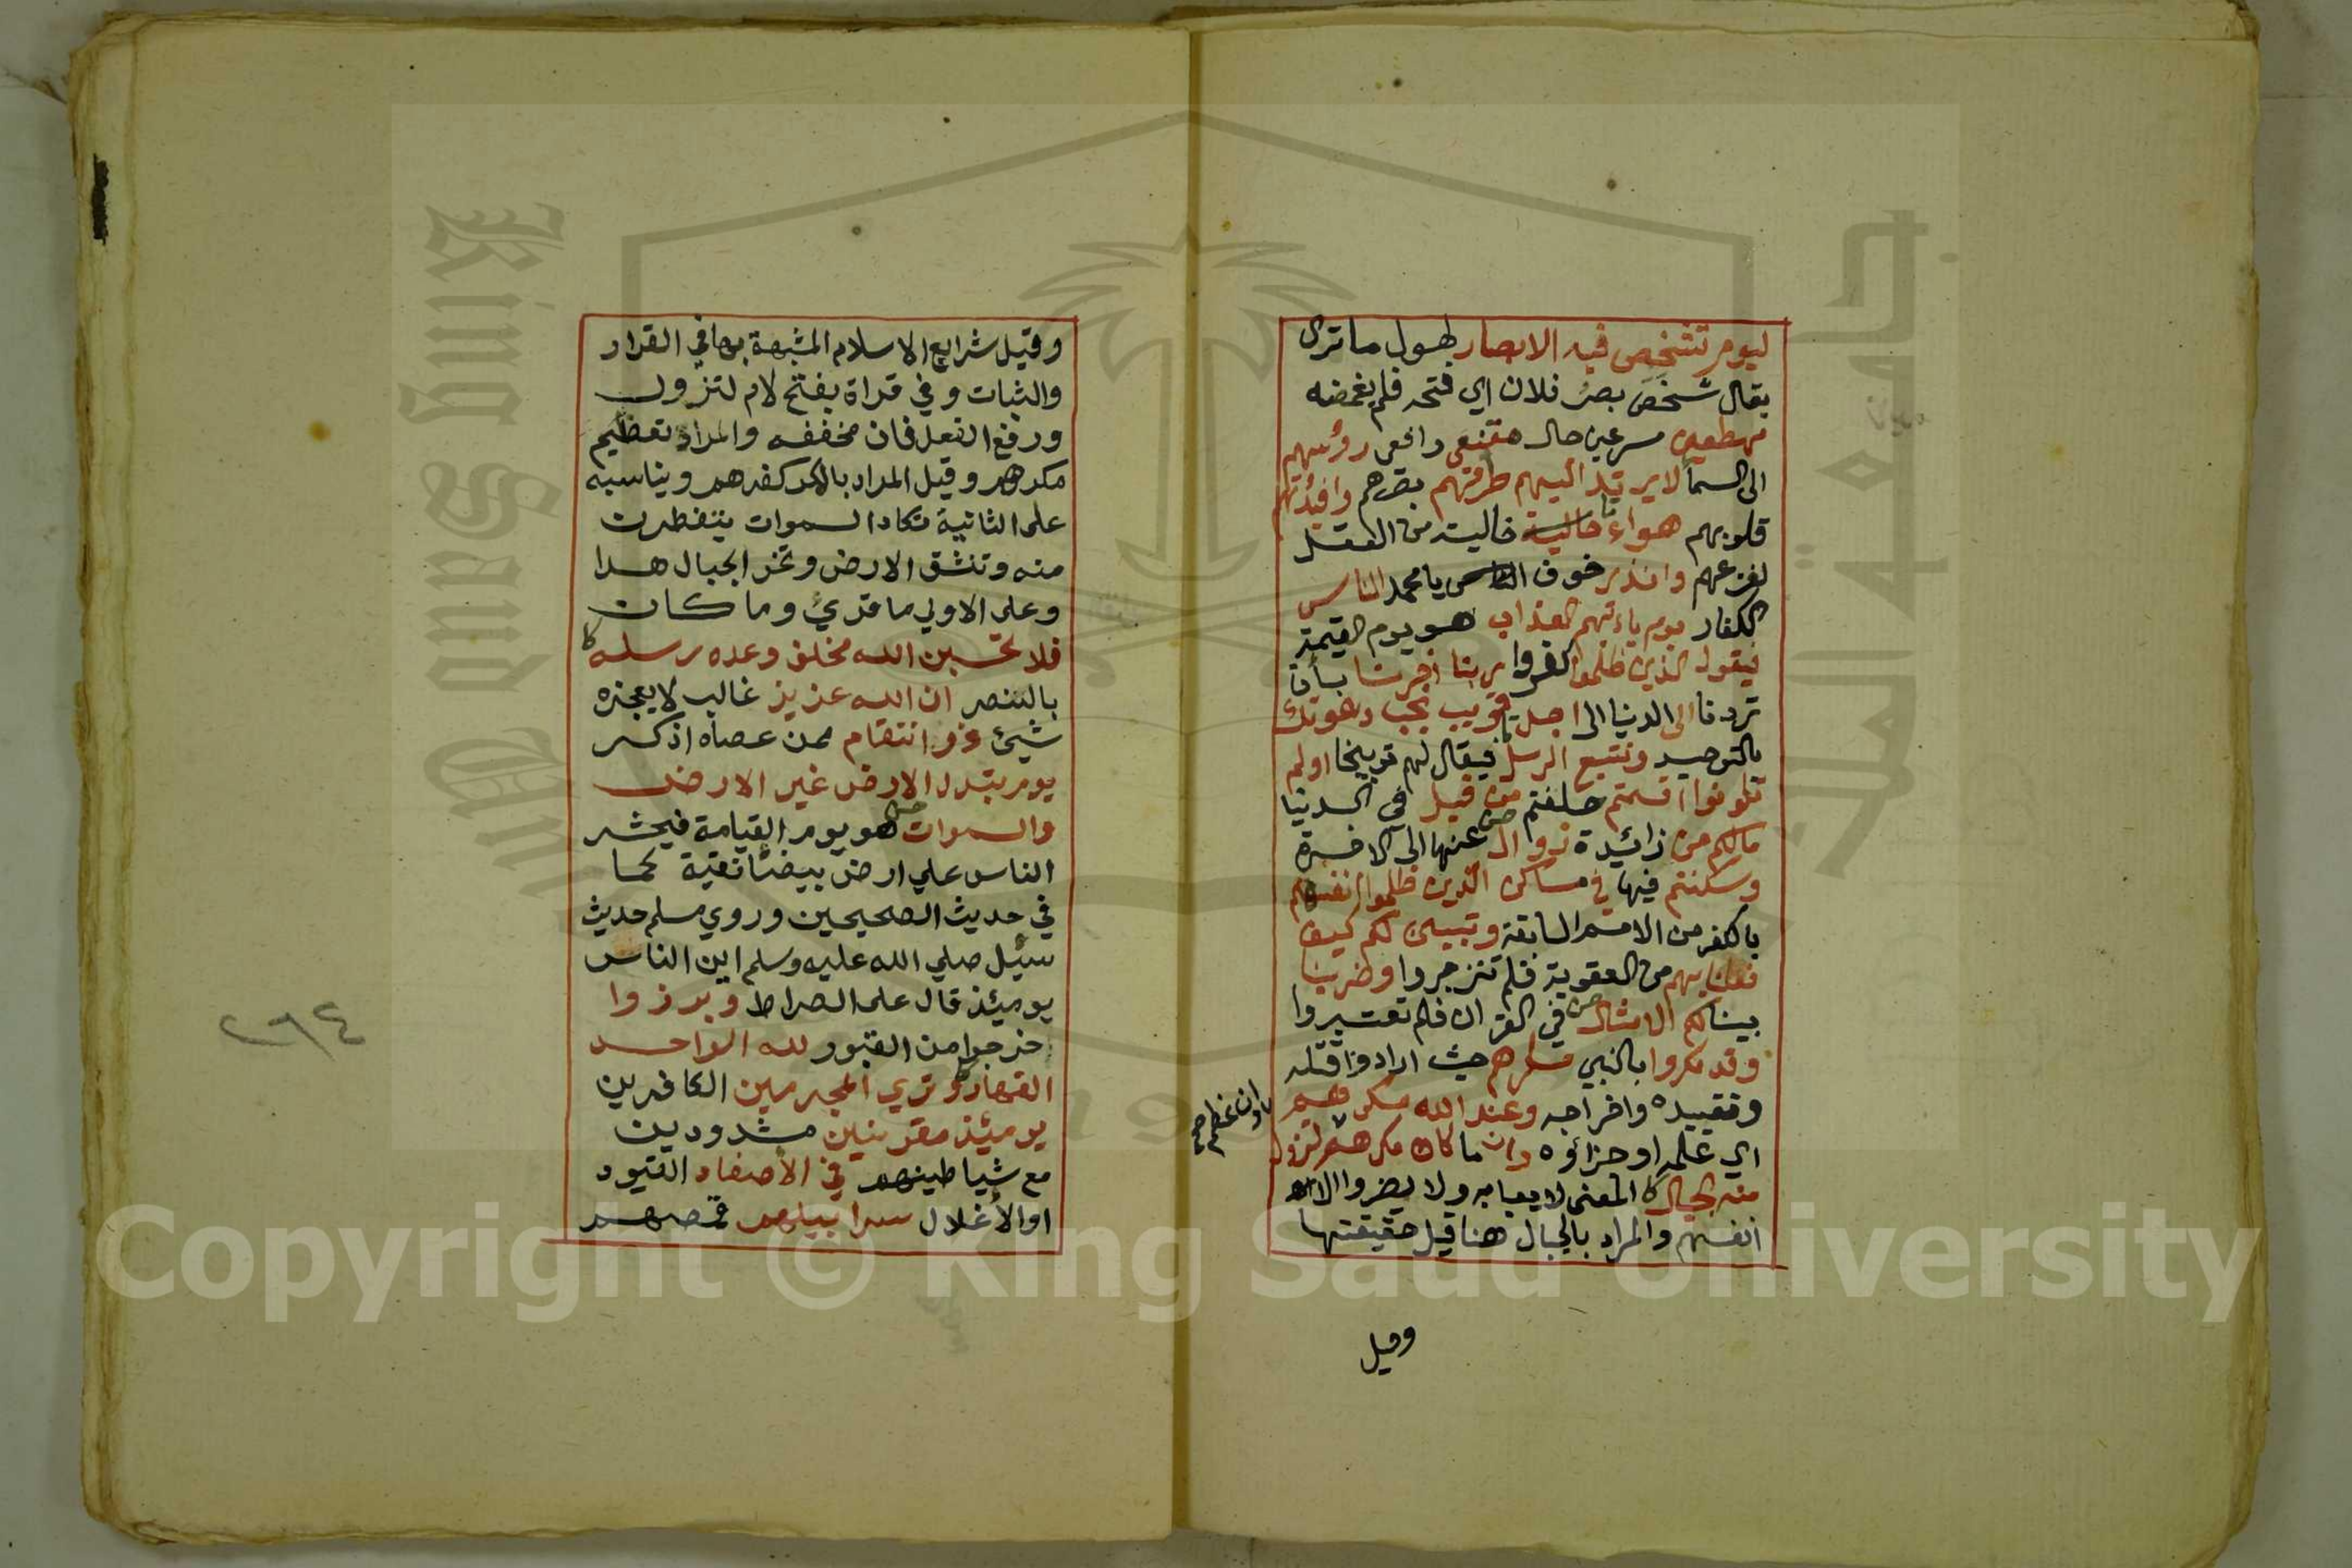 ليوم تشخص فيه الابصار لهول ما ترى
يقال شخَصَ بصرُ فلان اي فتحه فلم يغمضه
مهطعين مسرعين حال مقنعي رافعي رؤسهم
الى السمآ لا يرتد اليهم طرفهم بصرهم وافئدتهم
قلوبهم هواء خالية من العقل
لفزعهم وانذر خوف يا محمد الناس
الكفار يوم ياءتهم العذاب هو يوم القيمة
فيقول الذين ظلموا كفروا ربنا اخرنا بأن
تردنا الى الدنيا الى اجل قريب نجب دعوتك
بالتوحيد ونتبع الرسل فيقال لهم توبيخا اولم
تكونوا اقسمتم حلفتم من قبل في الدنيا
مالكم من زائيدة زوال عنها الى الاخرة
وسكنتم فيها في مساكن الذين ظلموا انفسهم
بالكفر من الامم السابقة وتبين لكم كيف
فعلنا بهم من العقوبة فلم تنزجروا وضربنا
بينا لكم الامثال في القران فلم تعتبروا
وقد مكروا بالنبي مكرهم حيث ارادوا قتله
وتقييده واخراجه وعند الله مكرهم
اي علمه او جزاؤه وان ما كان مكرهم لتزول
منه الجبال المعنى لا يعبا به ولا يضروا الا
انفسهم والمراد بالجبال هنا قيل حقيقتها
وان عظم صح
وقيل
وقيل شرايع الاسلام المشبهة بها في القرار
والثبات وفي قراة بفتح لام لتزول
ورفع الفعل فان مخففه والمراد تعظيم
مكرهم وقيل المراد بالمكر كفرهم ويناسبه
على الثانية تكاد السموات يتفطرن
منه وتنشق الارض وتخر الجبال هدا
وعلى الاولي ما قريء وما كان
فلا تحسبن الله مخلف وعده رسله
بالنصر ان الله عزيز غالب لا يعجزه
شيئ ذو انتقام ممن عصاه اذكر
يوم تبدل الارض غير الارض
والسموات هو يوم القيامة فيحشر
الناس علي ارض بيضآ نقية كما
في حديث الصحيحين وروي مسلم حديث
سئيل صلي الله عليه وسلم اين الناس
يوميئذ قال على الصراط وبرزوا
خرجوا من القبور لله الواحد
القهار وتري المجرمين الكافرين
يوميئذ مقرنين مشدودين
مع شياطينهم في الأصفاد القيود
او الأغلال سرابيلهم قمصهم
٢٦٤
Copyright © King Saud University
King Saud University
جامعة الملك سعود